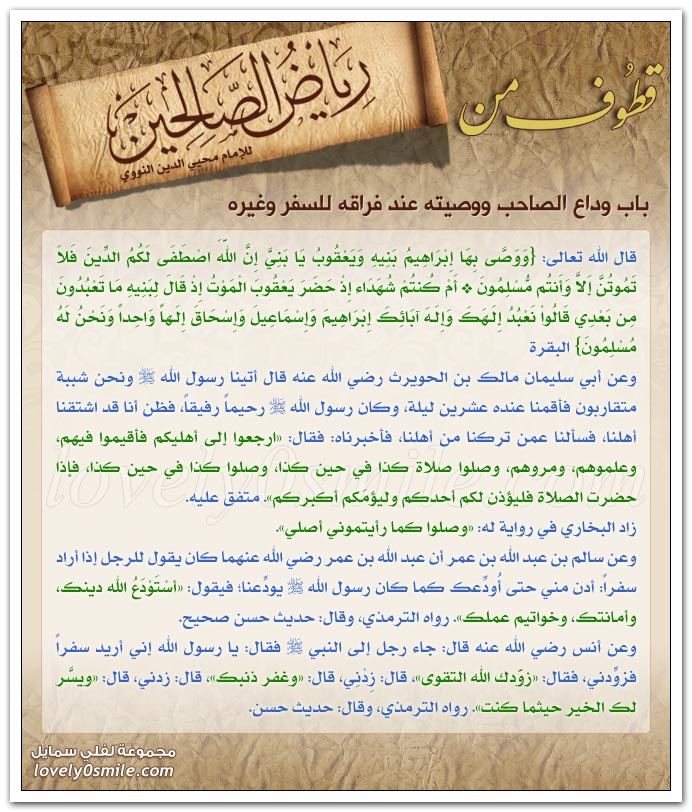 قطوف من
رياض الصالحين
للإمام محيي الدين النووي
باب وداع الصاحب ووصيته عند فراقه للسفر وغيره
قال الله تعالى: {وَوَصَّى بِهَا إِبْرَاهِيمُ بَنِيهِ وَيَعْقُوبُ يَا بَنِيَّ إِنَّ اللَّهَ اصْطَفَى لَكُمُ الدِّينَ فَلاَ
تَمُوتُنَّ إَلاَّ وَأَنتُم مُّسْلِمُونَ ❖ أَمْ كُنتُمْ شُهَدَاء إِذْ حَضَرَ يَعْقُوبَ الْمَوْتُ إِذْ قَالَ لِبَنِيهِ مَا تَعْبُدُونَ
مِن بَعْدِي قَالُواْ نَعْبُدُ إِلَهَكَ وَإِلَهَ آبَائِكَ إِبْرَاهِيمَ وَإِسْمَاعِيلَ وَإِسْحَاقَ إِلَهاً وَاحِداً وَنَحْنُ لَهُ
مُسْلِمُونَ} البقرة
وعن أبي سليمان مالك بن الحويرث رضي الله عنه قال أتينا رسول الله ﷺ ونحن شببة
متقاربون فأقمنا عنده عشرين ليلة، وكان رسول الله ﷺ رحيماً رفيقاً، فظن أنا قد اشتقنا
أهلنا، فسألنا عمن تركنا من أهلنا، فأخبرناه: فقال: «ارجعوا إلى أهليكم فأقيموا فيهم،
وعلموهم، ومروهم، وصلوا صلاة كذا في حين كذا، وصلوا كذا في حين كذا، فإذا
حضرت الصلاة فليؤذن لكم أحدكم وليؤمّكم أكبركم». متفق عليه.
زاد البخاري في رواية له: «وصلوا كما رأيتموني أصلي».
وعن سالم بن عبد الله بن عمر أن عبد الله بن عمر رضي الله عنهما كان يقول للرجل إذا أراد
سفراً: أدن مني حتى أُودِّعك كما كان رسول الله ﷺ يودِّعنا؛ فيقول: «أسْتَوْدَعُ الله دينك،
وأمانتك، وخواتيم عملك». رواه الترمذي، وقال: حديث حسن صحيح.
وعن أنس رضي الله عنه قال: جاء رجل إلى النبي ﷺ فقال: يا رسول الله إني أريد سفراً
فزوِّدني، فقال: «زوّدك الله التقوى»، قال: زِدْنِي، قال: «وغفر ذنبك»، قال: زدني، قال: «ويسَّر
لك الخير حيثما كنت». رواه الترمذي، وقال: حديث حسن.
lovely0smile.com
مجموعة لفلي سمايل
lovely0smile.com